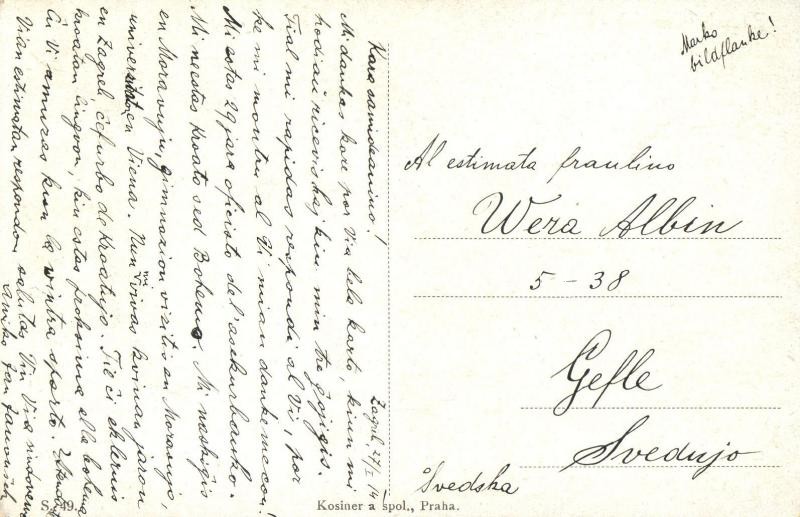 Zagreb 27/I 14
Kara samideanino!
Mi dankas kore por Via bela karto, kiun mi
hodiaŭ ricevis kaj kiu min tre ĝojigis.
Tial mi rapidas respondi al Vi, por
ke mi montru al Vi mian dankemecon!
Mi estas 29 jara oficisto del' asekurbanko.
Mi ne estas kroato sed Bohemo. Mi naskiĝis
en Moravujo, gimnazion vizitis en Moravujo,
universitaton en Viena. Nun mi vivas kvinan jaron
en Zagreb ĉefurbo de Kroatujo. Tie ĉi eklernis
kroatan lingvon, kiu estas proksima al la bohema
Ĉu Vi amuras kun la wintra sporto.
Vian estimatan respondon salutas Vin Via
Amiko Jan
Marko
bildflanke!
Al estimata fraulino
Wera Albin
5 - 38
Gefle
Svedujo
Švedska
S. 49.
Kosiner a spol., Praha.